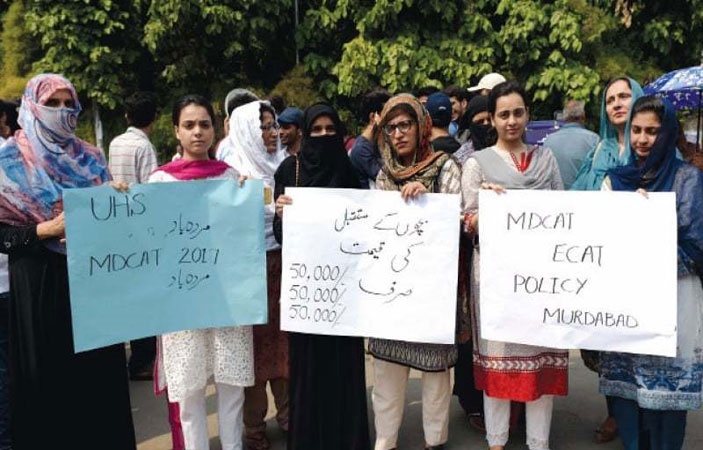 UHS
مردہ باد
MDCAT 2017
مردہ باد
بچوں کے مستقبل
کی قیمت
صرف
50,000/-
50,000/-
50,000/-
MDCAT
ECAT
POLICY
MURDABAD